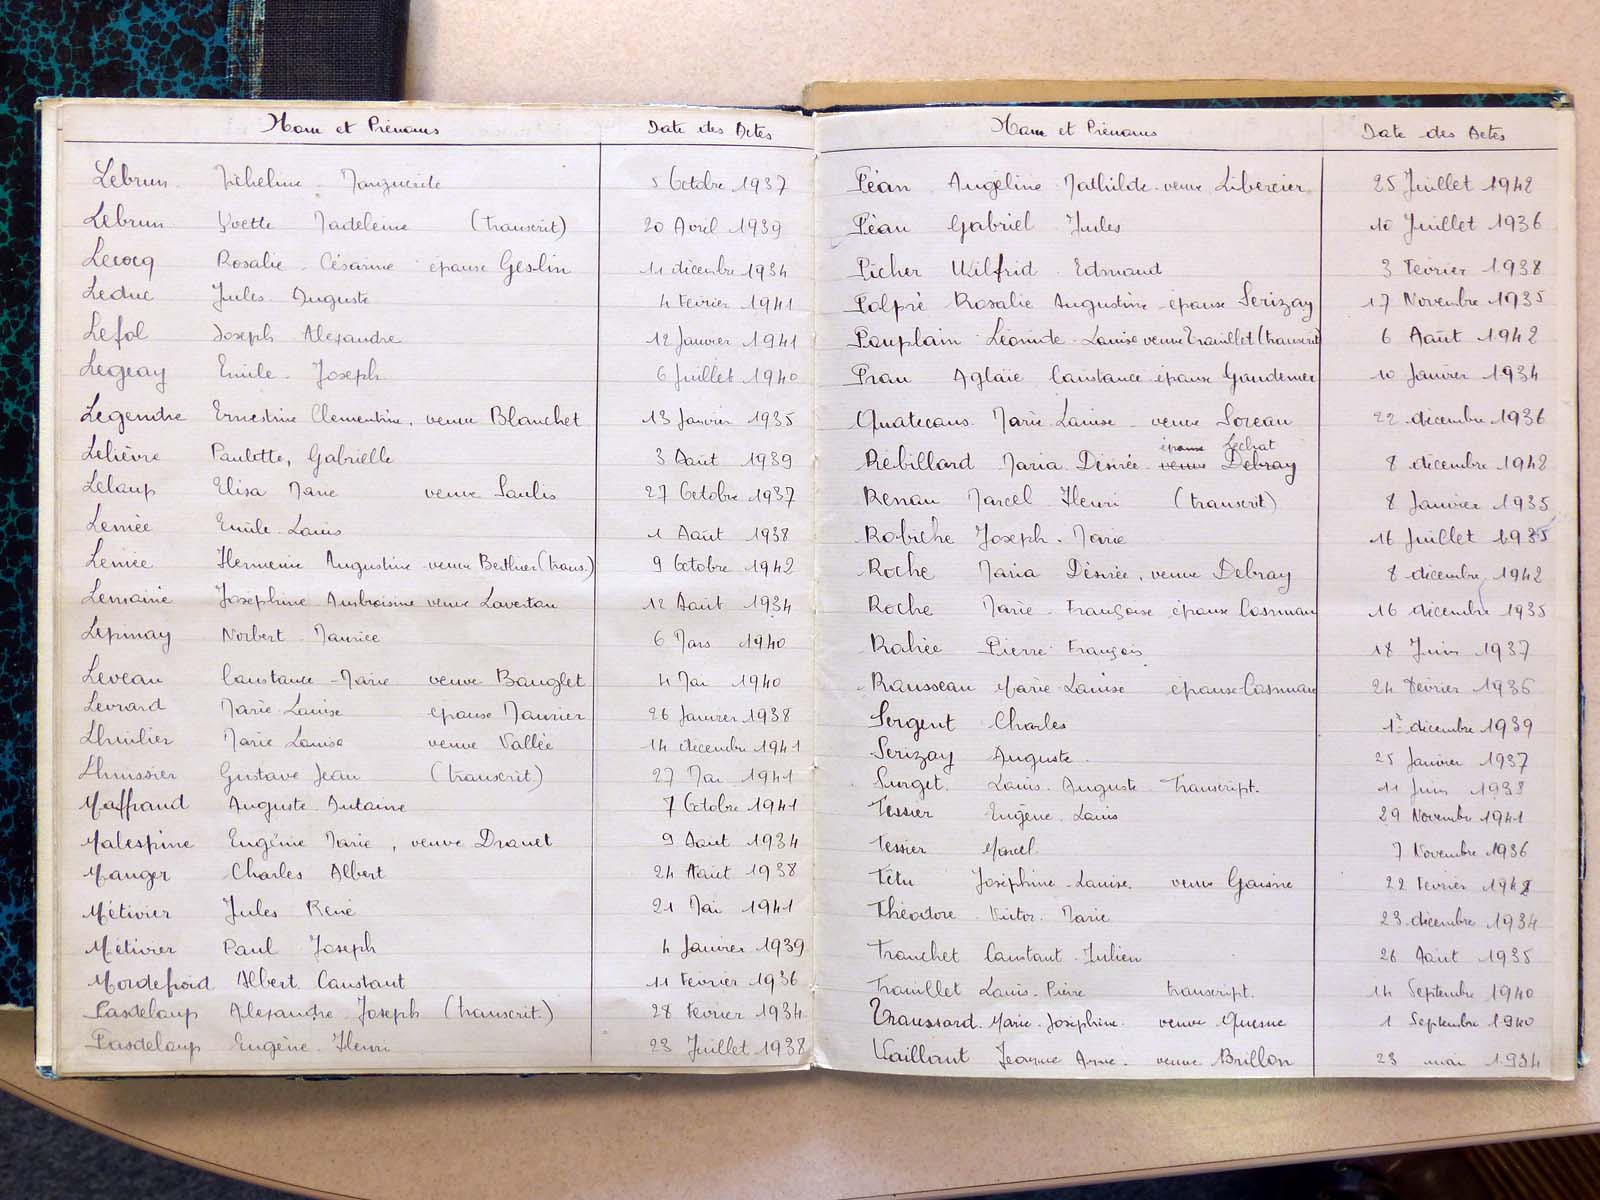 Nom et Prénoms Date des Actes
Lebrun Micheline Marguerite 5 Octobre 1937
Lebrun Yvette Madeleine (transcrit) 20 Avril 1939
Lecocq Rosalie Césarine épouse Geslin 11 décembre 1934
Leduc Jules Auguste 4 Février 1941
Lefol Joseph Alexandre 12 Janvier 1941
Legeay Emile Joseph 6 Juillet 1940
Legendre Ernestine Clementine, veuve Blanchet 13 Janvier 1935
Lelièvre Paulette, Gabrielle 3 Août 1939
Leloup Elisa Marie veuve Saulis 27 Octobre 1937
Lemée Emile Louis 1 Août 1938
Lemée Hermenie Augustine veuve Berthier (trans.) 9 Octobre 1942
Lemoine Joséphine Ambroisine veuve Lavertou 12 Août 1934
Lepinay Norbert Maurice 6 Mars 1940
Leveau Constance Marie veuve Bouglet 4 Mai 1940
Levrard Marie Louise épouse Maurier 26 Janvier 1938
Lhuilier Marie Louise veuve Vallée 14 décembre 1941
Lhuissier Gustave Jean (transcrit) 27 Mai 1941
Maffraud Auguste Antoine 7 Octobre 1941
Malespine Eugénie Marie, veuve Drouet 9 Août 1934
Manger Charles Albert 24 Août 1938
Métivier Jules René 21 Mai 1941
Métivier Paul Joseph 4 Janvier 1939
Mordefroid Albert Constant 11 Février 1936
Pasdeloup Alexandre Joseph (transcrit) 28 Février 1934
Pasdeloup Eugène Henri 23 Juillet 1938
Nom et Prénoms Date des Actes
Péan Angéline Mathilde veuve Libercier 25 Juillet 1942
Péan Gabriel Jules 10 Juillet 1936
Picher Wilfrid Edmond 3 Février 1938
Polpré Rosalie Augustine épouse Serizay 17 Novembre 1935
Pouplain Léonide Louise veuve Trouillet (transcrit) 6 Août 1942
Prou Aglaïe Constance épouse Goudemer 10 Janvier 1934
Quatecous Marie Louise veuve Loreau 22 décembre 1936
épouse Lechat
Rebillard Maria Désirée veuve Debray 8 décembre 1942
Renou Marcel Henri (transcrit) 8 Janvier 1935
Robiche Joseph Marie 16 Juillet 1935
Roche Maria Désirée, veuve Debray 8 décembre 1942
Roche Marie Françoise épouse Cosmeau 16 décembre 1935
Rohée Pierre François 18 Juin 1937
Rousseau Marie Louise épouse Cosmeau 24 Février 1936
Sergent Charles 1er décembre 1939
Serizay Auguste 25 Janvier 1937
Surget Louis Auguste Transcript. 11 Juin 1938
Tessier Eugène Louis 29 Novembre 1941
Tessier Marcel 7 Novembre 1936
Têtu Joséphine Louise veuve Goisne 22 Février 1942
Théodore Victor Marie 23 décembre 1934
Tronchet Constant Julien 26 Août 1935
Trouillet Louis Pierre transcript. 14 Septembre 1940
Troussard Marie Joséphine veuve Quesne 1 Septembre 1940
Vaillant Jeanne Anne veuve Brillon 23 mai 1934